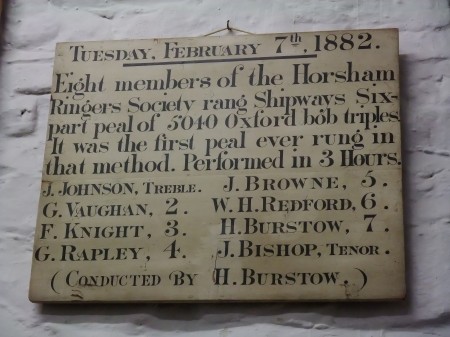 Tuesday, February 7th, 1882.
Eight members of the Horsham
Ringers Society rang Shipways Six-
part peal of 5040 Oxford bob triples.
It was the first peal ever rung in
that method. Performed in 3 Hours.
J. Johnson, Treble. J. Browne, 5.
G. Vaughan, 2. W. H. Redford, 6.
F. Knight, 3. H. Burstow, 7.
G. Rapley, 4. J. Bishop, Tenor.
(Conducted by H. Burstow.)